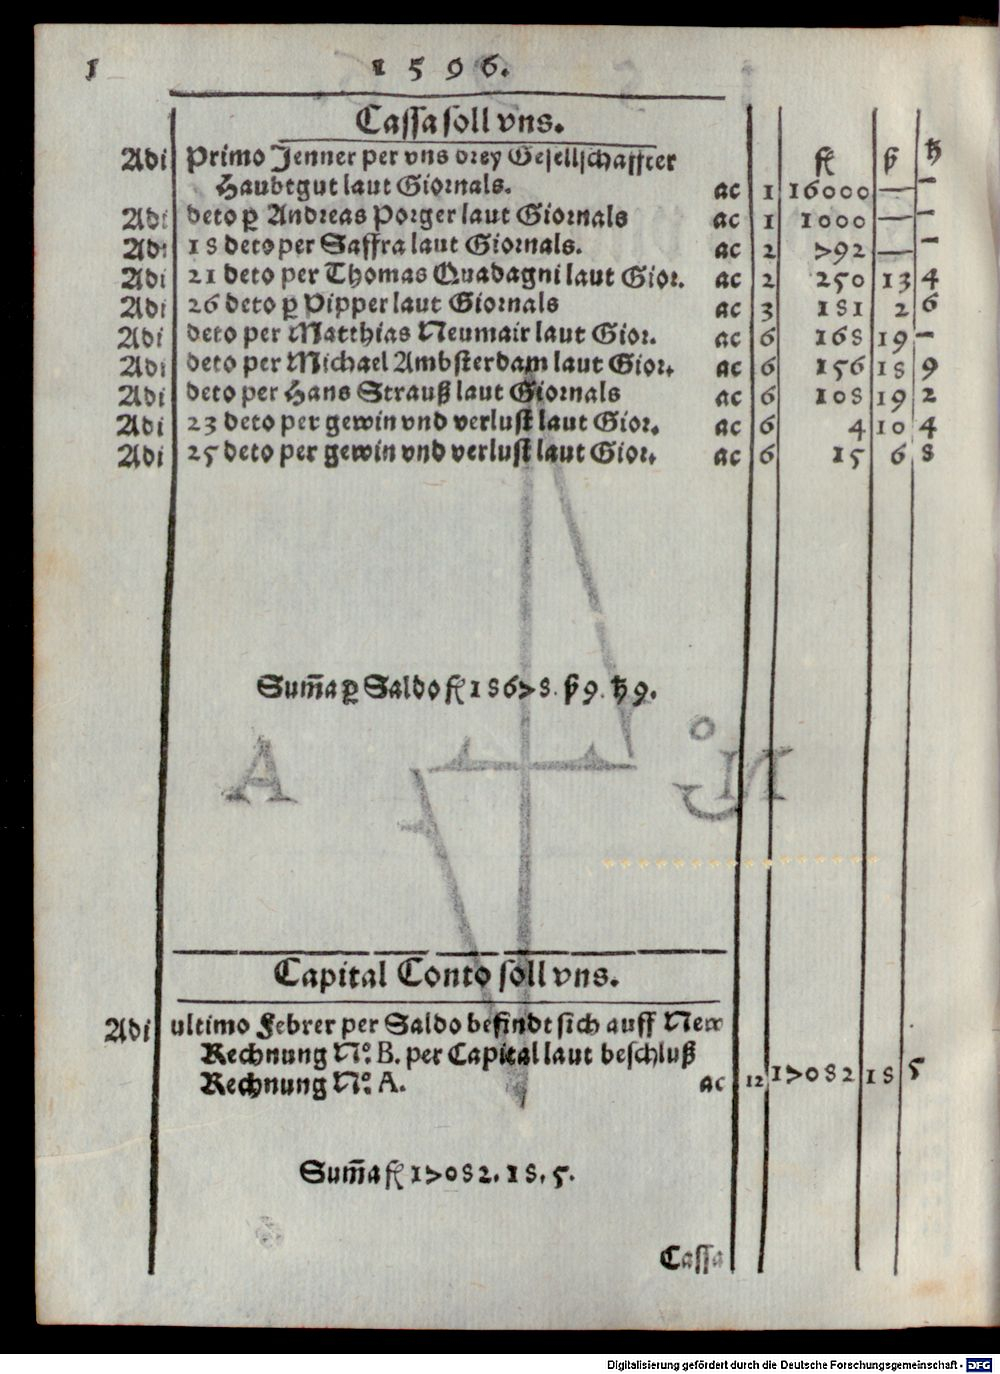 1 1596.
Cassa soll vns.
fl ß ₰
Adi Primo Jenner per vns drey Gesellschaffter
Haubtgut laut Giornals. ac 1 16000 — —
Adi deto p Andreas Porger laut Giornals ac 1 1000 — —
Adi 18 deto per Saffra laut Giornals. ac 2 792 — —
Adi 21 deto per Thomas Quadagni laut Gior. ac 2 250 13 4
Adi 26 deto p Pipper laut Giornals ac 3 181 2 6
Adi deto per Matthias Neumair laut Gior. ac 6 168 19 —
Adi deto per Michael Ambsterdam laut Gior. ac 6 156 18 9
Adi deto per Hans Strauß laut Giornals ac 6 108 19 2
Adi 23 deto per gewin vnd verlust laut Gior. ac 6 4 10 4
Adi 25 deto per gewin vnd verlust laut Gior. ac 6 15 6 8
Sum̃a p Saldo fl 18678. ß 9. ₰ 9.
Capital Conto soll vns.
Adi ultimo Febrer per Saldo befindt sich auff New
Rechnung Nº. B. per Capital laut beschluß
Rechnung Nº. A. ac 12 17082 18 5
Sum̃a fl 17082. 18. 5.
Cassa
Digitalisierung gefördert durch die Deutsche Forschungsgemeinschaft - DFG